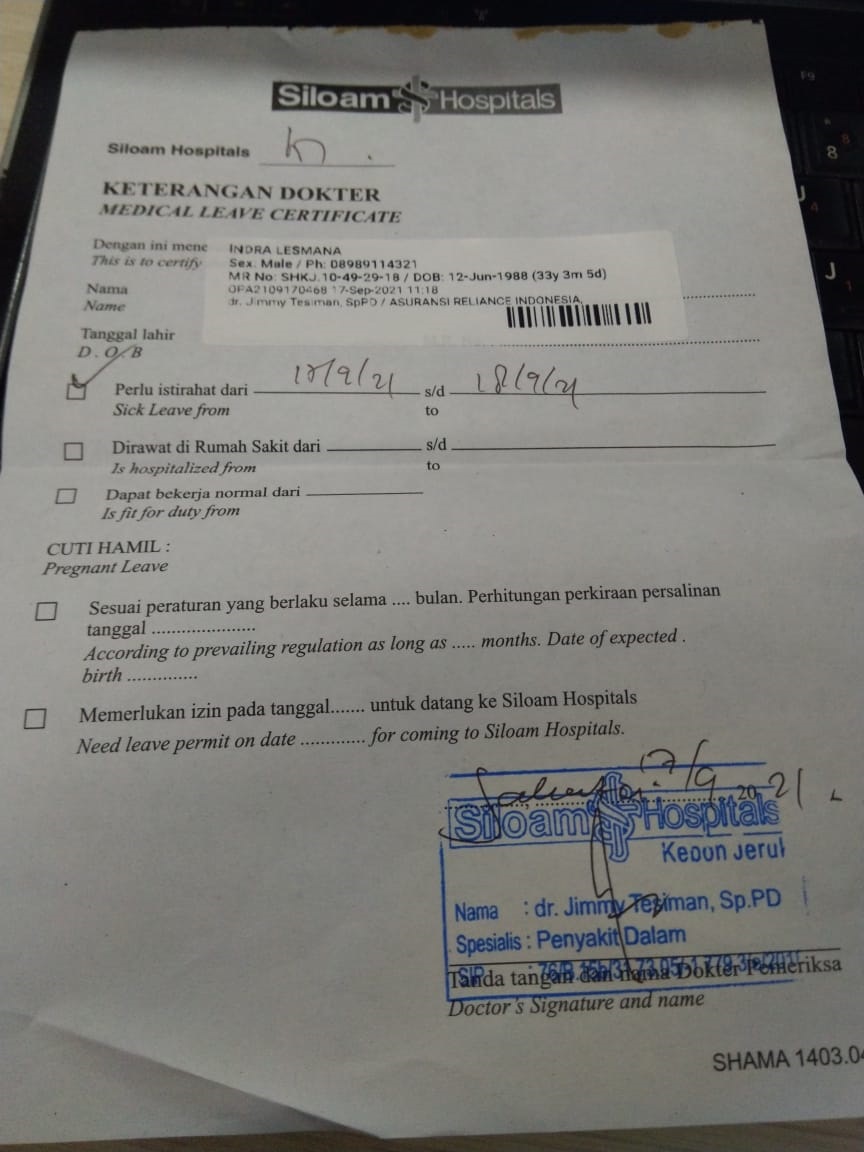 Siloam Hospitals
Siloam Hospitals
KETERANGAN DOKTER
MEDICAL LEAVE CERTIFICATE
Dengan ini mene
This is to certify
INDRA LESMANA
Sex. Male / Ph: 08989114321
MR No: SHKJ.10-49-29-18 / DOB: 12-Jun-1988 (33y 3m 5d)
OPA2109170468 17-Sep-2021 11:18
dr. Jimmy Tesiman, SpPD / ASURANSI RELIANCE INDONESIA,
Nama
Name
Tanggal lahir
D.O.B
Perlu istirahat dari 17/9/21 s/d 18/9/21
Sick Leave from to
Dirawat di Rumah Sakit dari s/d
Is hospitalized from to
Dapat bekerja normal dari
Is fit for duty from
CUTI HAMIL :
Pregnant Leave
Sesuai peraturan yang berlaku selama .... bulan. Perhitungan perkiraan persalinan
tanggal .....................
According to prevailing regulation as long as ..... months. Date of expected .
birth ..............
Memerlukan izin pada tanggal....... untuk datang ke Siloam Hospitals
Need leave permit on date ............. for coming to Siloam Hospitals.
17/9 2021
Siloam Hospitals
Kebon Jeruk
Nama : dr. Jimmy Tesiman, Sp.PD
Spesialis : Penyakit Dalam
SIP
Tanda tangan dan nama Dokter Pemeriksa
Doctor's Signature and name
SHAMA 1403.04